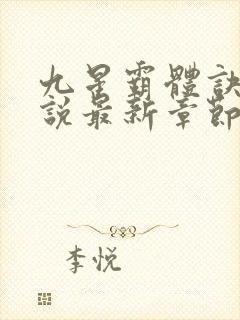 九星霸體訣
說最新章節
李悦